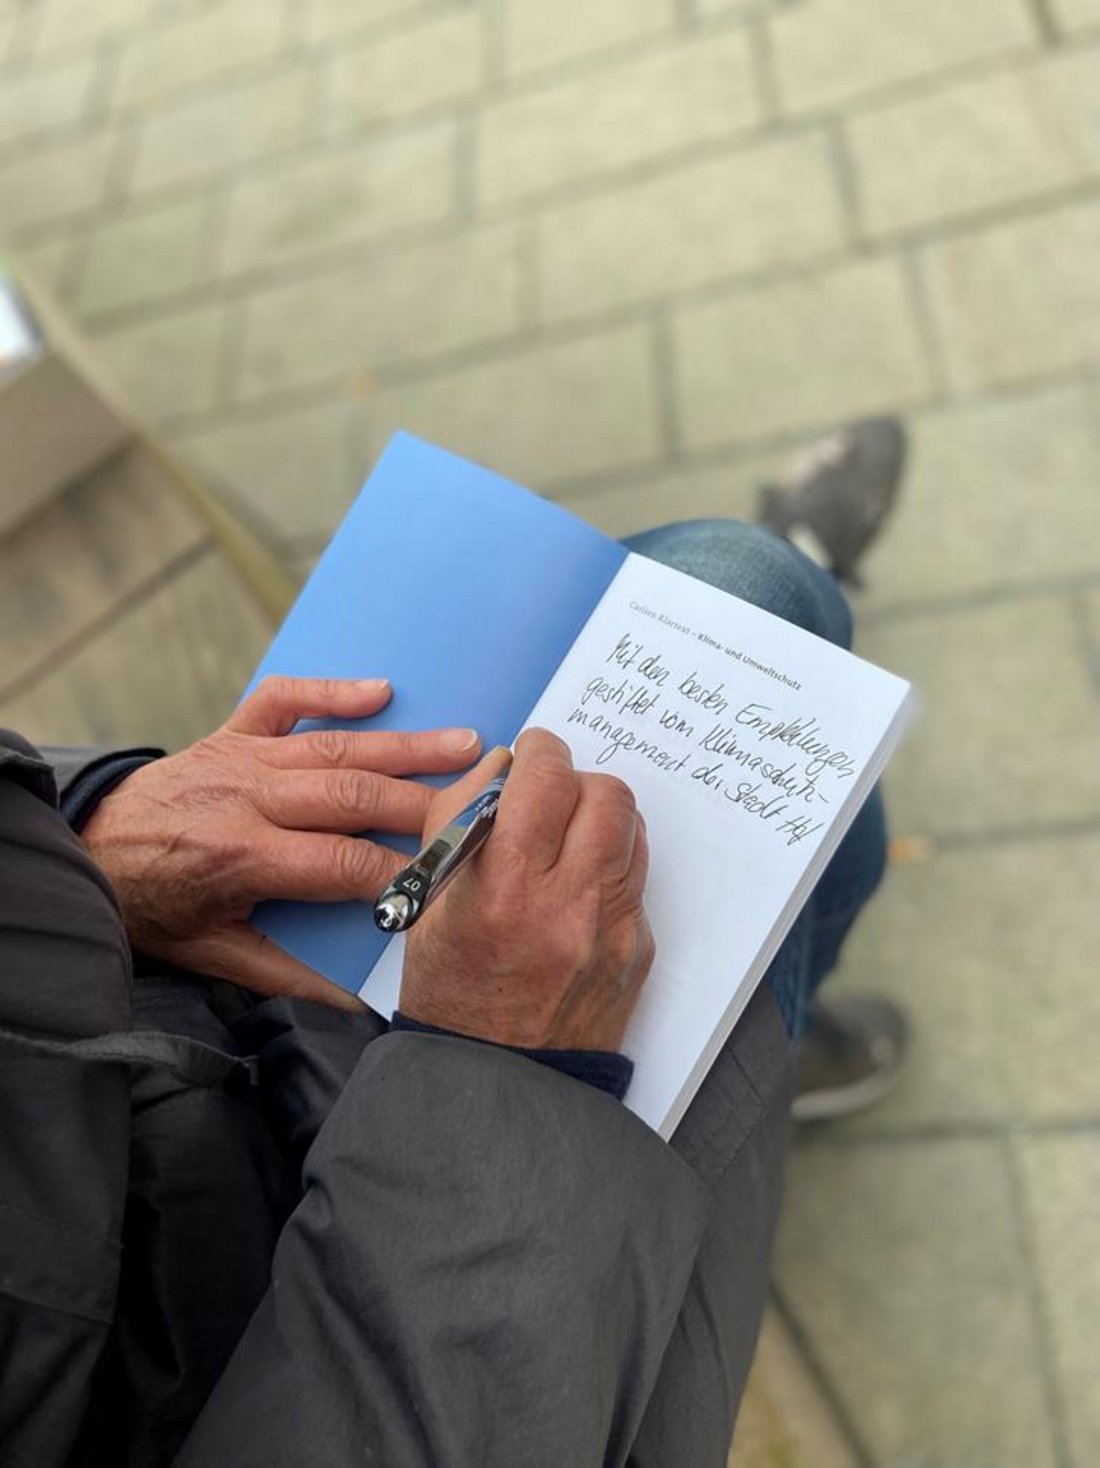 Carlsen Klartext – Klima- und Umweltschutz
Mit den besten Empfehlungen
gestiftet vom Klimaschutz-
management der Stadt Hof
07